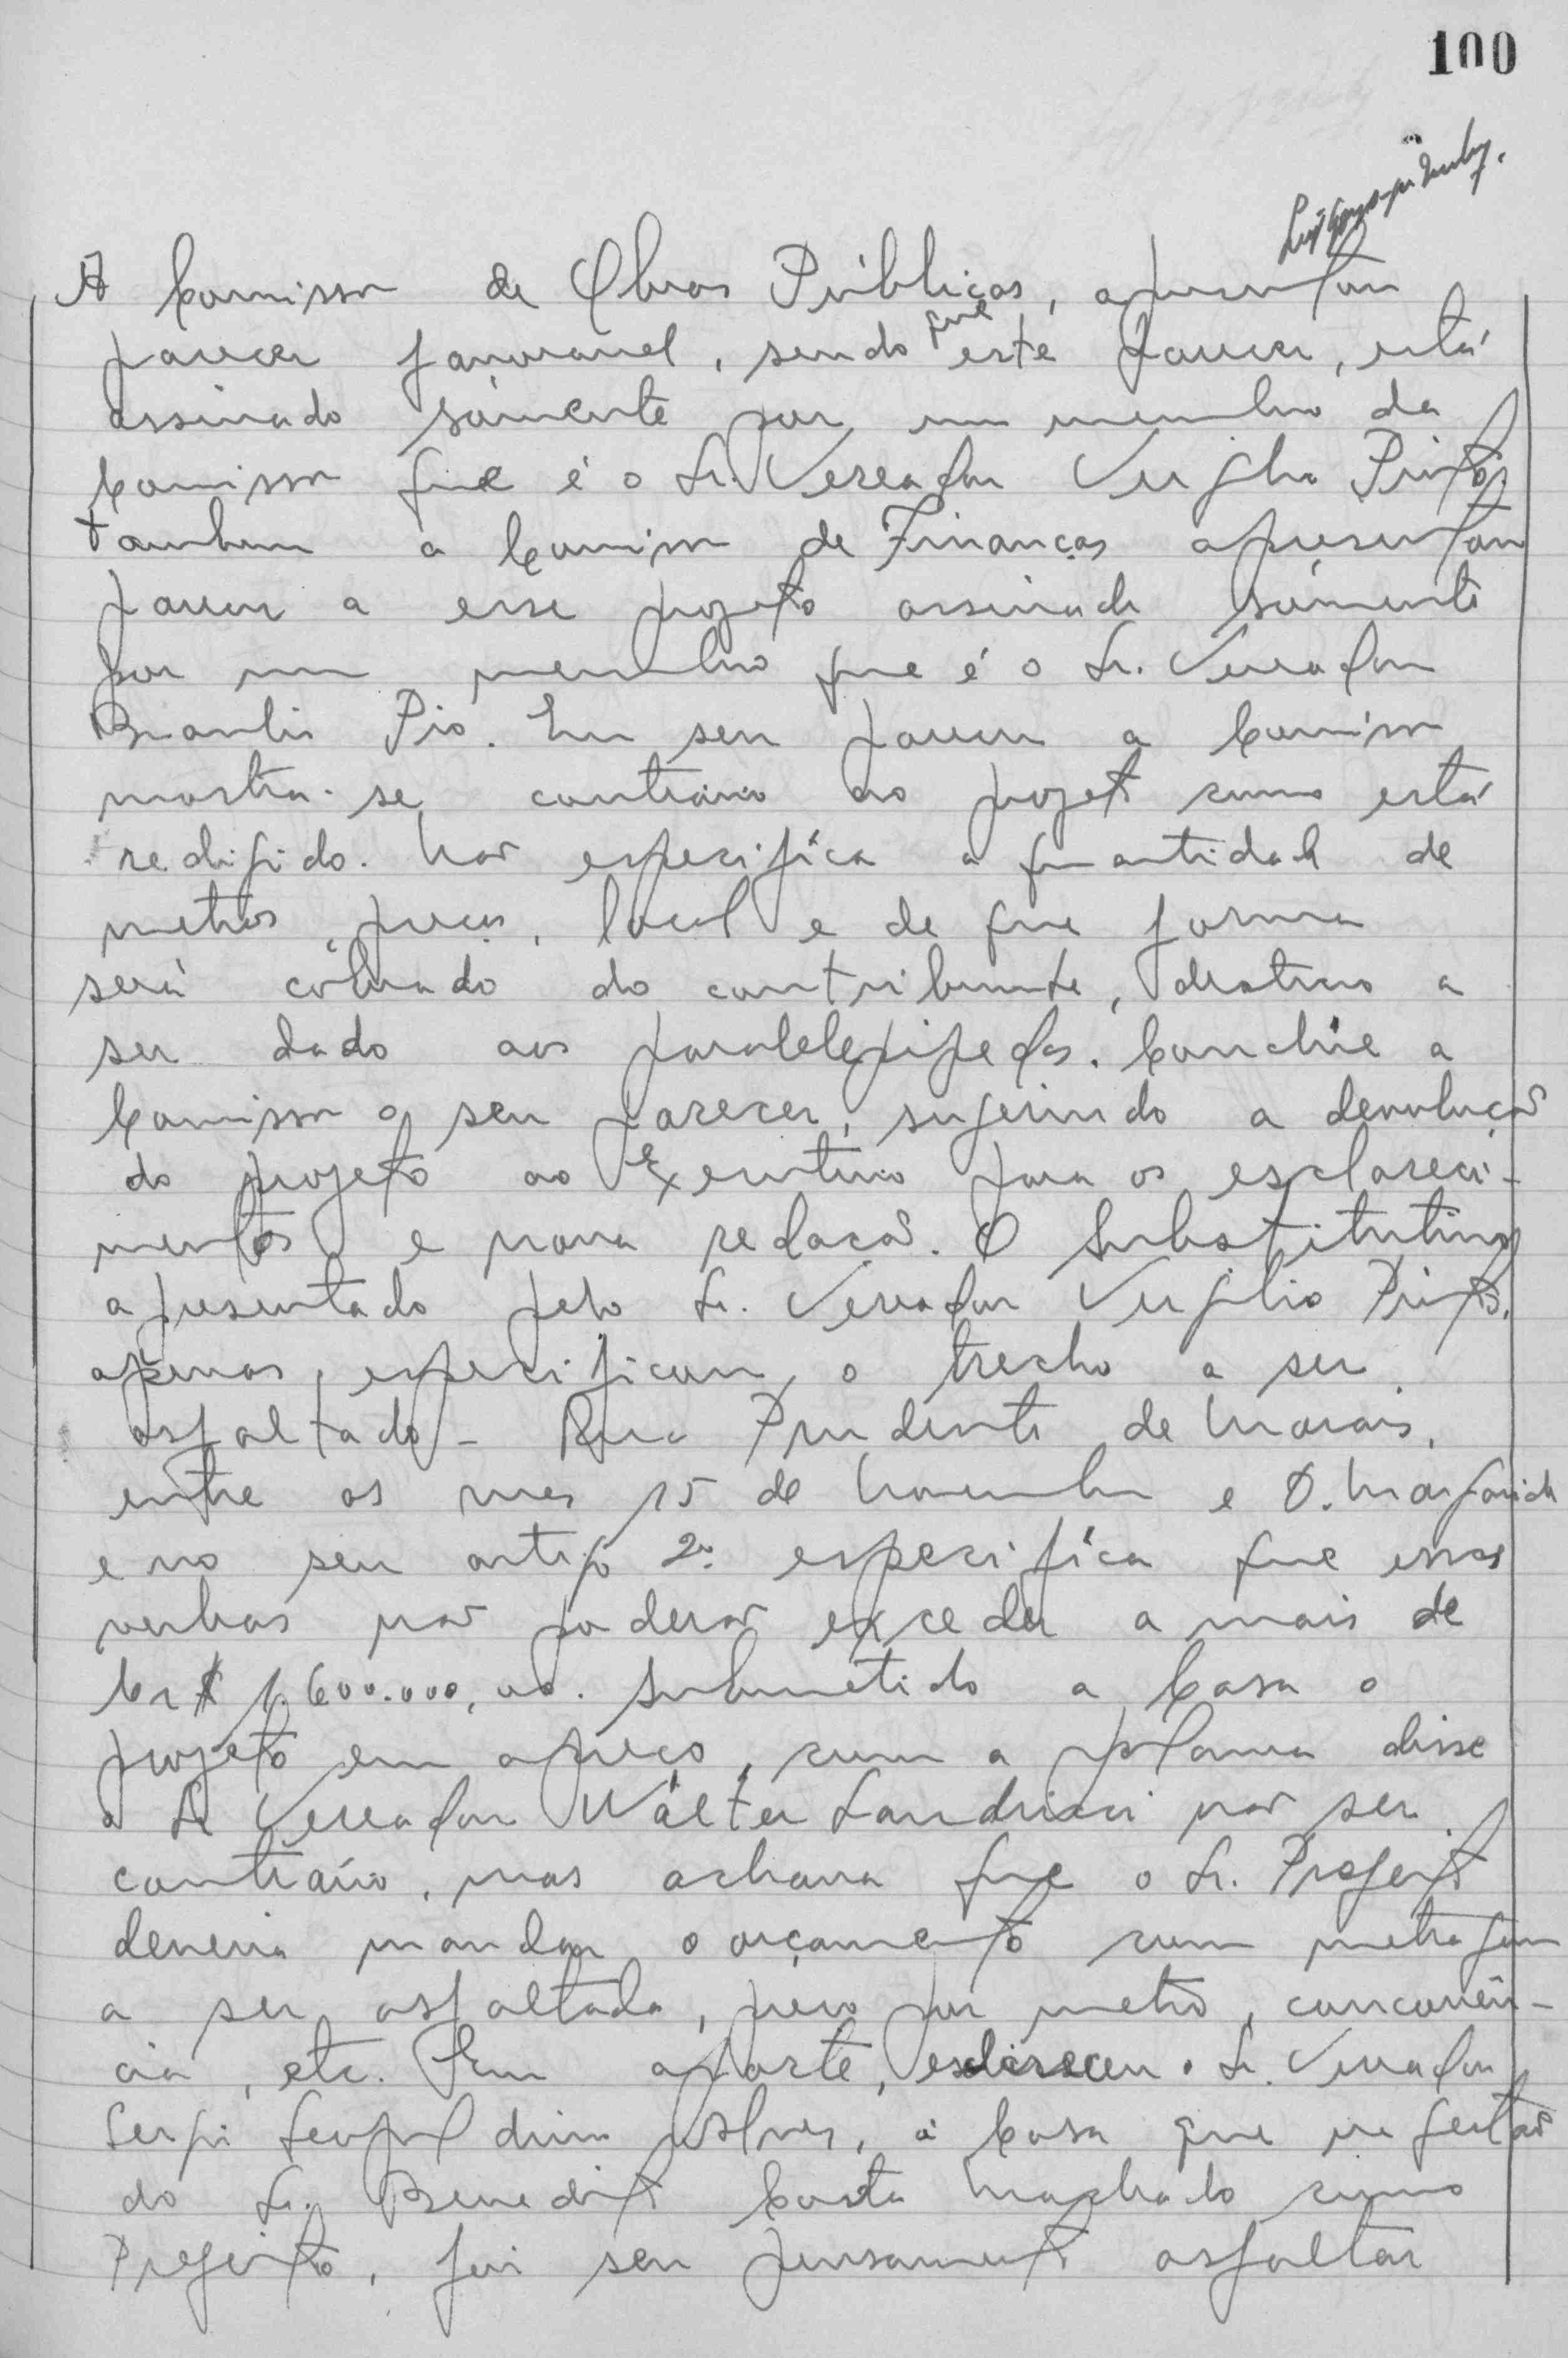 100
A Comissão de Obras Públicas, apresentou
parecer favoravel, sendo que este parecer, está
assinado sómente por um membro da
Comissão que é o Sr. Vereador Virgilio Pinto,
tambem a Comissão de Finanças apresentou
parecer a esse projeto assinado sómente
por um membro que é o Sr. Vereador
Pio. Em seu parecer a Comissão
mostra-se contrário ao projeto como está
redigido. Não especifíca a quantidade de
metros, preços, local e de que forma
será cobrado do contribuinte, destino a
ser dado aos paralelepipedos. Conclúe a
Comissão o seu parecer, sugerindo a devolução
do projeto ao Executivo para os esclareci-
mentos e nova redação. O Substitutivo
apresentado pelo Sr. Vereador Virgilio Pinto,
apenas, especificou, o trecho a ser
asfaltado - Rua Prudente de Morais,
entre as ruas 15 de Novembro e D. Margarida
e no seu artigo 2º especifíca que essas
verbas não poderão exceder a mais de
Cr$ 1.600.000,00. Submetido a Casa o
projeto em apreço, com a palavra disse
o Sr Vereador Wálter não ser
contrário, mas achava que o Sr. Prefeito
deveria mandar o orçamento com metragem
a ser asfaltada, preço por metro, concorrên-
cia, etc. Em aparte, esclareceu o Sr. Vereador
Sergio Leopoldino Alves, á Casa que na gestão
do Sr. Benedito Costa Machado como
Prefeito, foi seu pensamento asfaltar